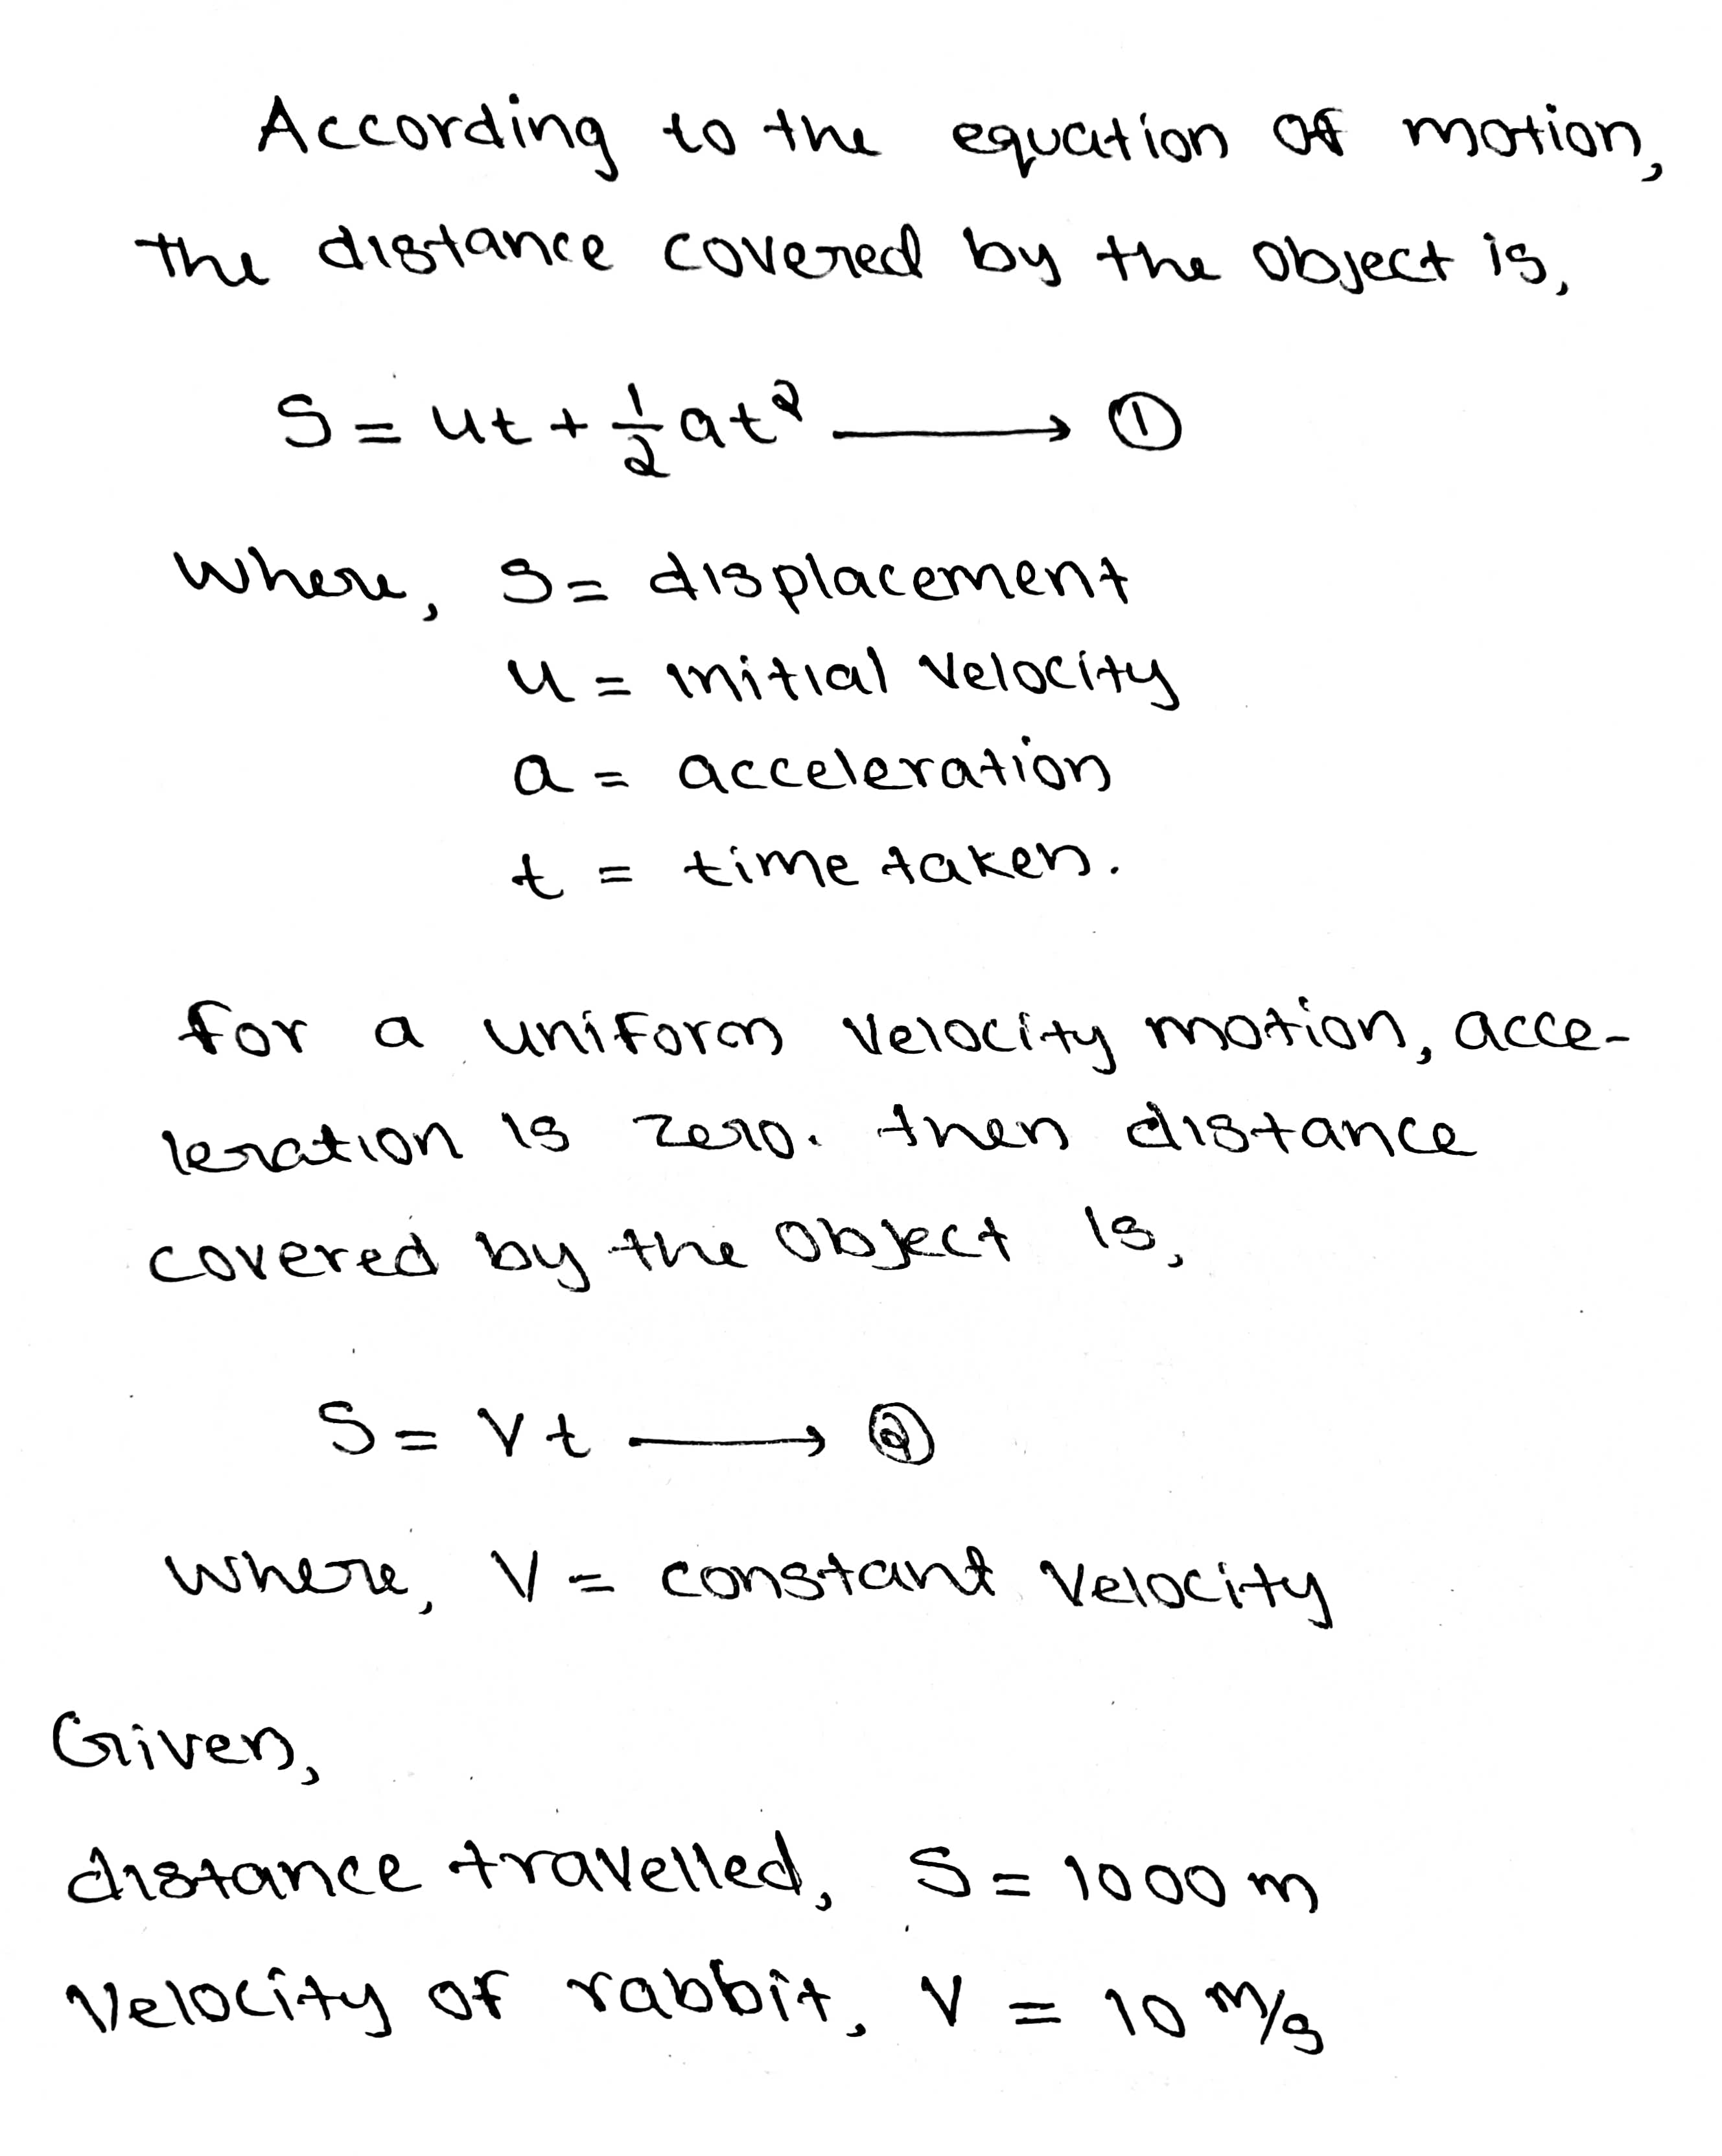 According to the equation of motion,
the distance covered by the object is,
S = ut + 1/2 at² ⟶ ①
Where, S = displacement
u = initial velocity
a = acceleration
t = time taken.
for a uniform velocity motion, acce-
leration is zero. then distance
covered by the object is,
S = vt ⟶ ②
where, V = constant velocity
Given,
distance travelled, S = 1000 m
Velocity of rabbit, V = 10 m/s